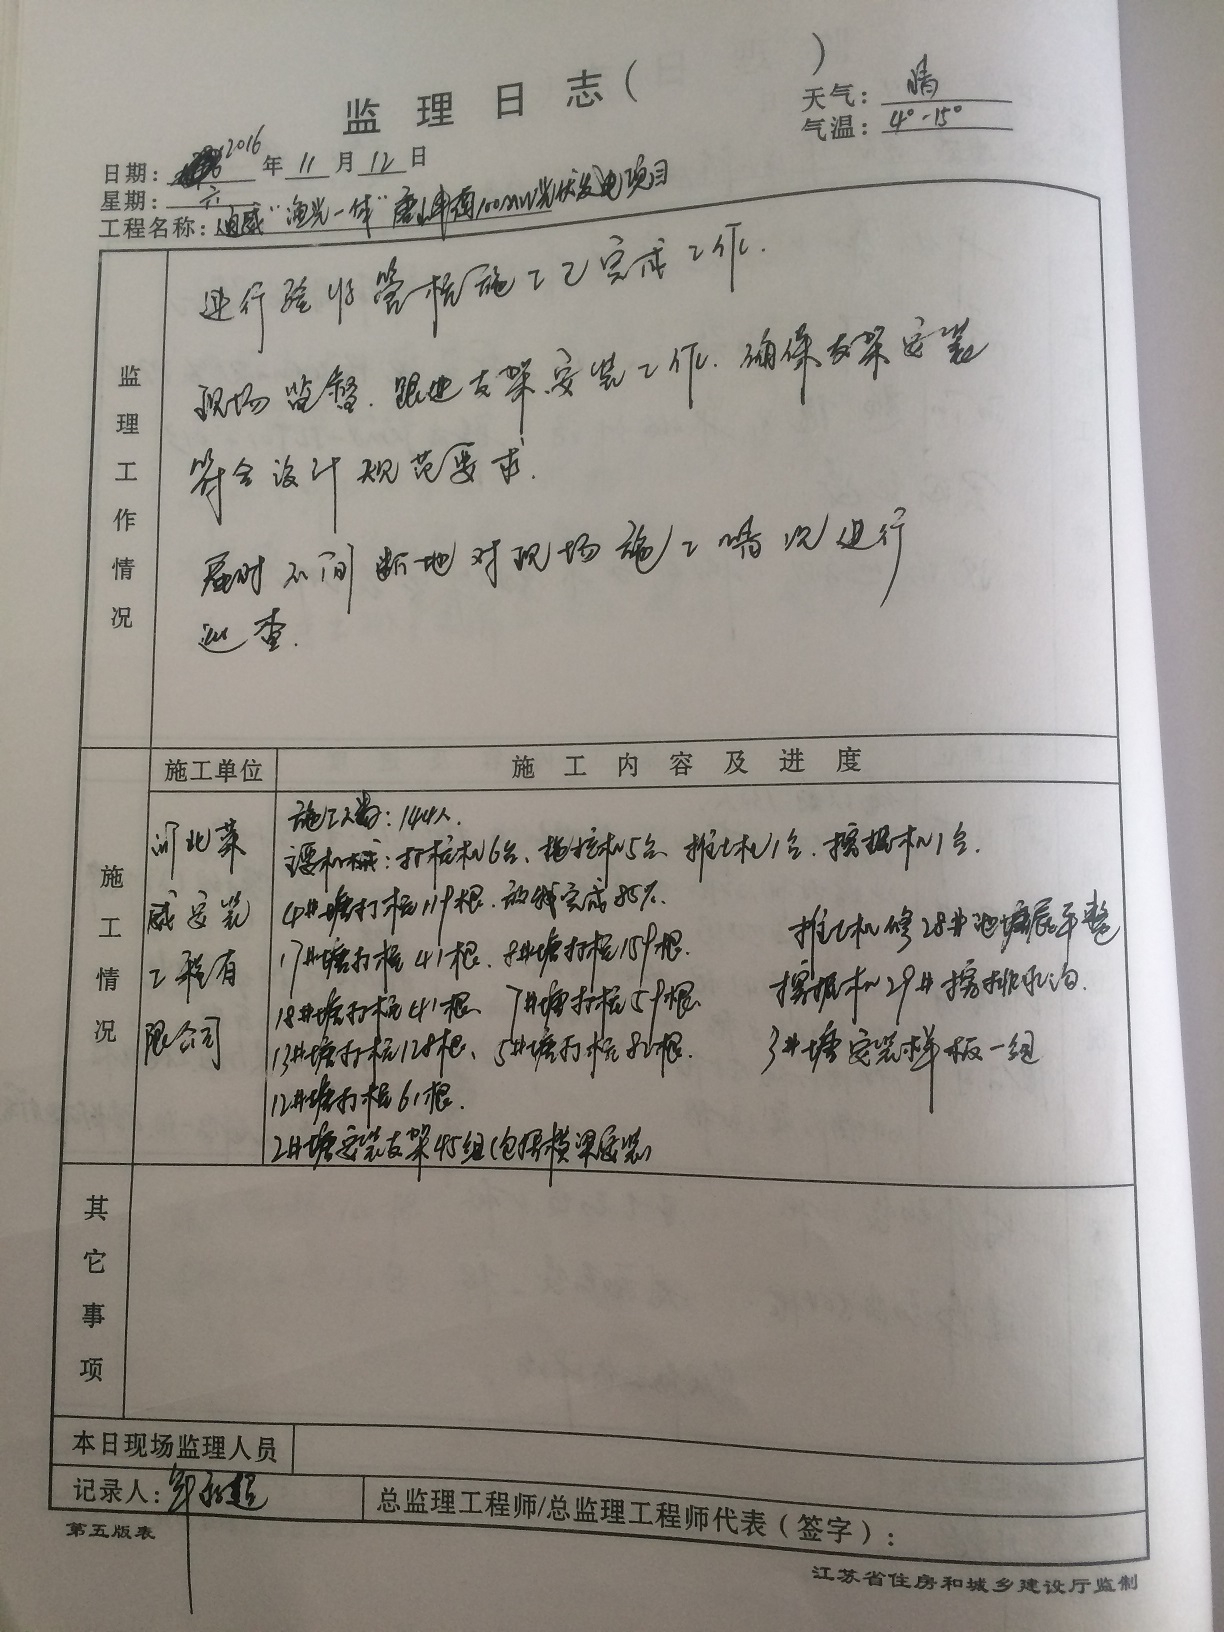 监理日志( )
天气: 晴
气温: 4°-15°
日期: 2016 年 11 月 12 日
星期: 六
工程名称: 通威"渔光一体"唐山丰南100MW光伏发电项目
监理工作情况
进行验收管桩施工已完成工作.
现场监督.跟进支架安装工作.确保支架安装
符合设计规范要求.
届时不间断地对现场施工情况进行
巡查.
施工单位
施工内容及进度
施工情况
河北
威安装
工程有
限公司
施工人数: 144人.
主要机械: 打桩机6台、拖桩机5台 推土机1台. 挖掘机1台.
4#塘打桩119根. 放线完成85%.
17#塘打桩41根. 8#塘打桩159根.
18#塘打桩41根. 7#塘打桩59根.
13#塘打桩128根、5#塘打桩82根.
12#塘打桩61根.
2#塘安装支架45组(包括横梁安装)
推土机修28#池塘底平整
挖掘机29#挖排水沟.
3#塘安装样板一组
其它事项
本日现场监理人员
记录人:
总监理工程师/总监理工程师代表(签字):
第五版表
江苏省住房和城乡建设厅监制